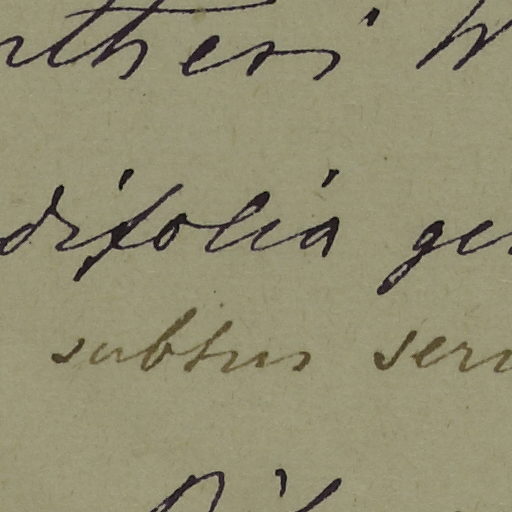 ntheri W
difolia ge
subtus seri